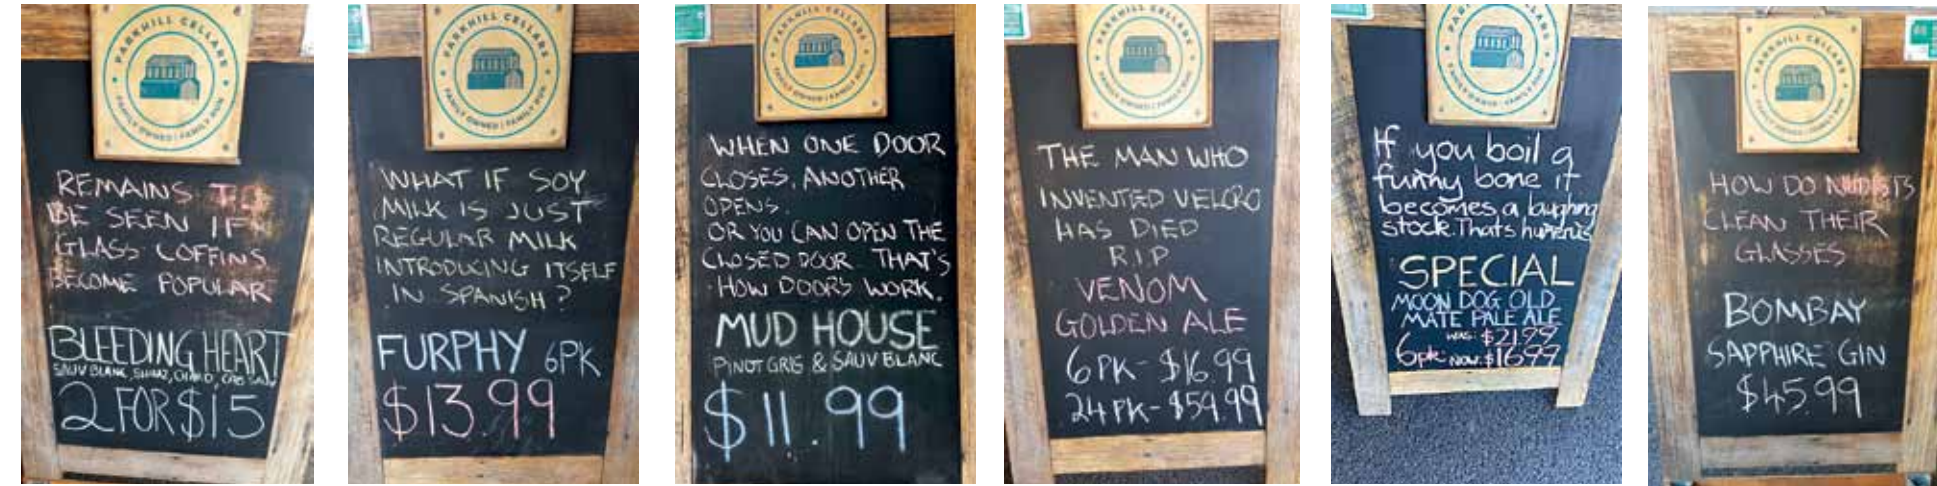 PARKHILL CELLARS
FAMILY OWNED | FAMILY RUN
REMAINS TO
BE SEEN IF
GLASS COFFINS
BECOME POPULAR
BLEEDING HEART
SAUV BLANC, SHIRAZ, CHARD, CAB SAUV
2 FOR $15
PARKHILL CELLARS
FAMILY OWNED | FAMILY RUN
WHAT IF SOY
MILK IS JUST
REGULAR MILK
INTRODUCING ITSELF
IN SPANISH?
FURPHY 6PK
$13.99
PARKHILL CELLARS
FAMILY OWNED | FAMILY RUN
WHEN ONE DOOR
CLOSES, ANOTHER
OPENS.
OR YOU CAN OPEN THE
CLOSED DOOR THAT'S
HOW DOORS WORK.
MUD HOUSE
PINOT GRIS & SAUV BLANC
$11.99
PARKHILL CELLARS
FAMILY OWNED | FAMILY RUN
THE MAN WHO
INVENTED VELCRO
HAS DIED
RIP
VENOM
GOLDEN ALE
6PK-$16.99
24PK-$59.99
PARKHILL CELLARS
FAMILY OWNED | FAMILY RUN
If you boil a
funny bone it
becomes a laughing
stock. Thats humerus
SPECIAL
MOON DOG OLD
MATE PALE ALE
WAS: $21.99
6pk NOW: $16.99
PARKHILL CELLARS
FAMILY OWNED | FAMILY RUN
HOW DO NUDISTS
CLEAN THEIR
GLASSES
BOMBAY
SAPPHIRE GIN
$45.99